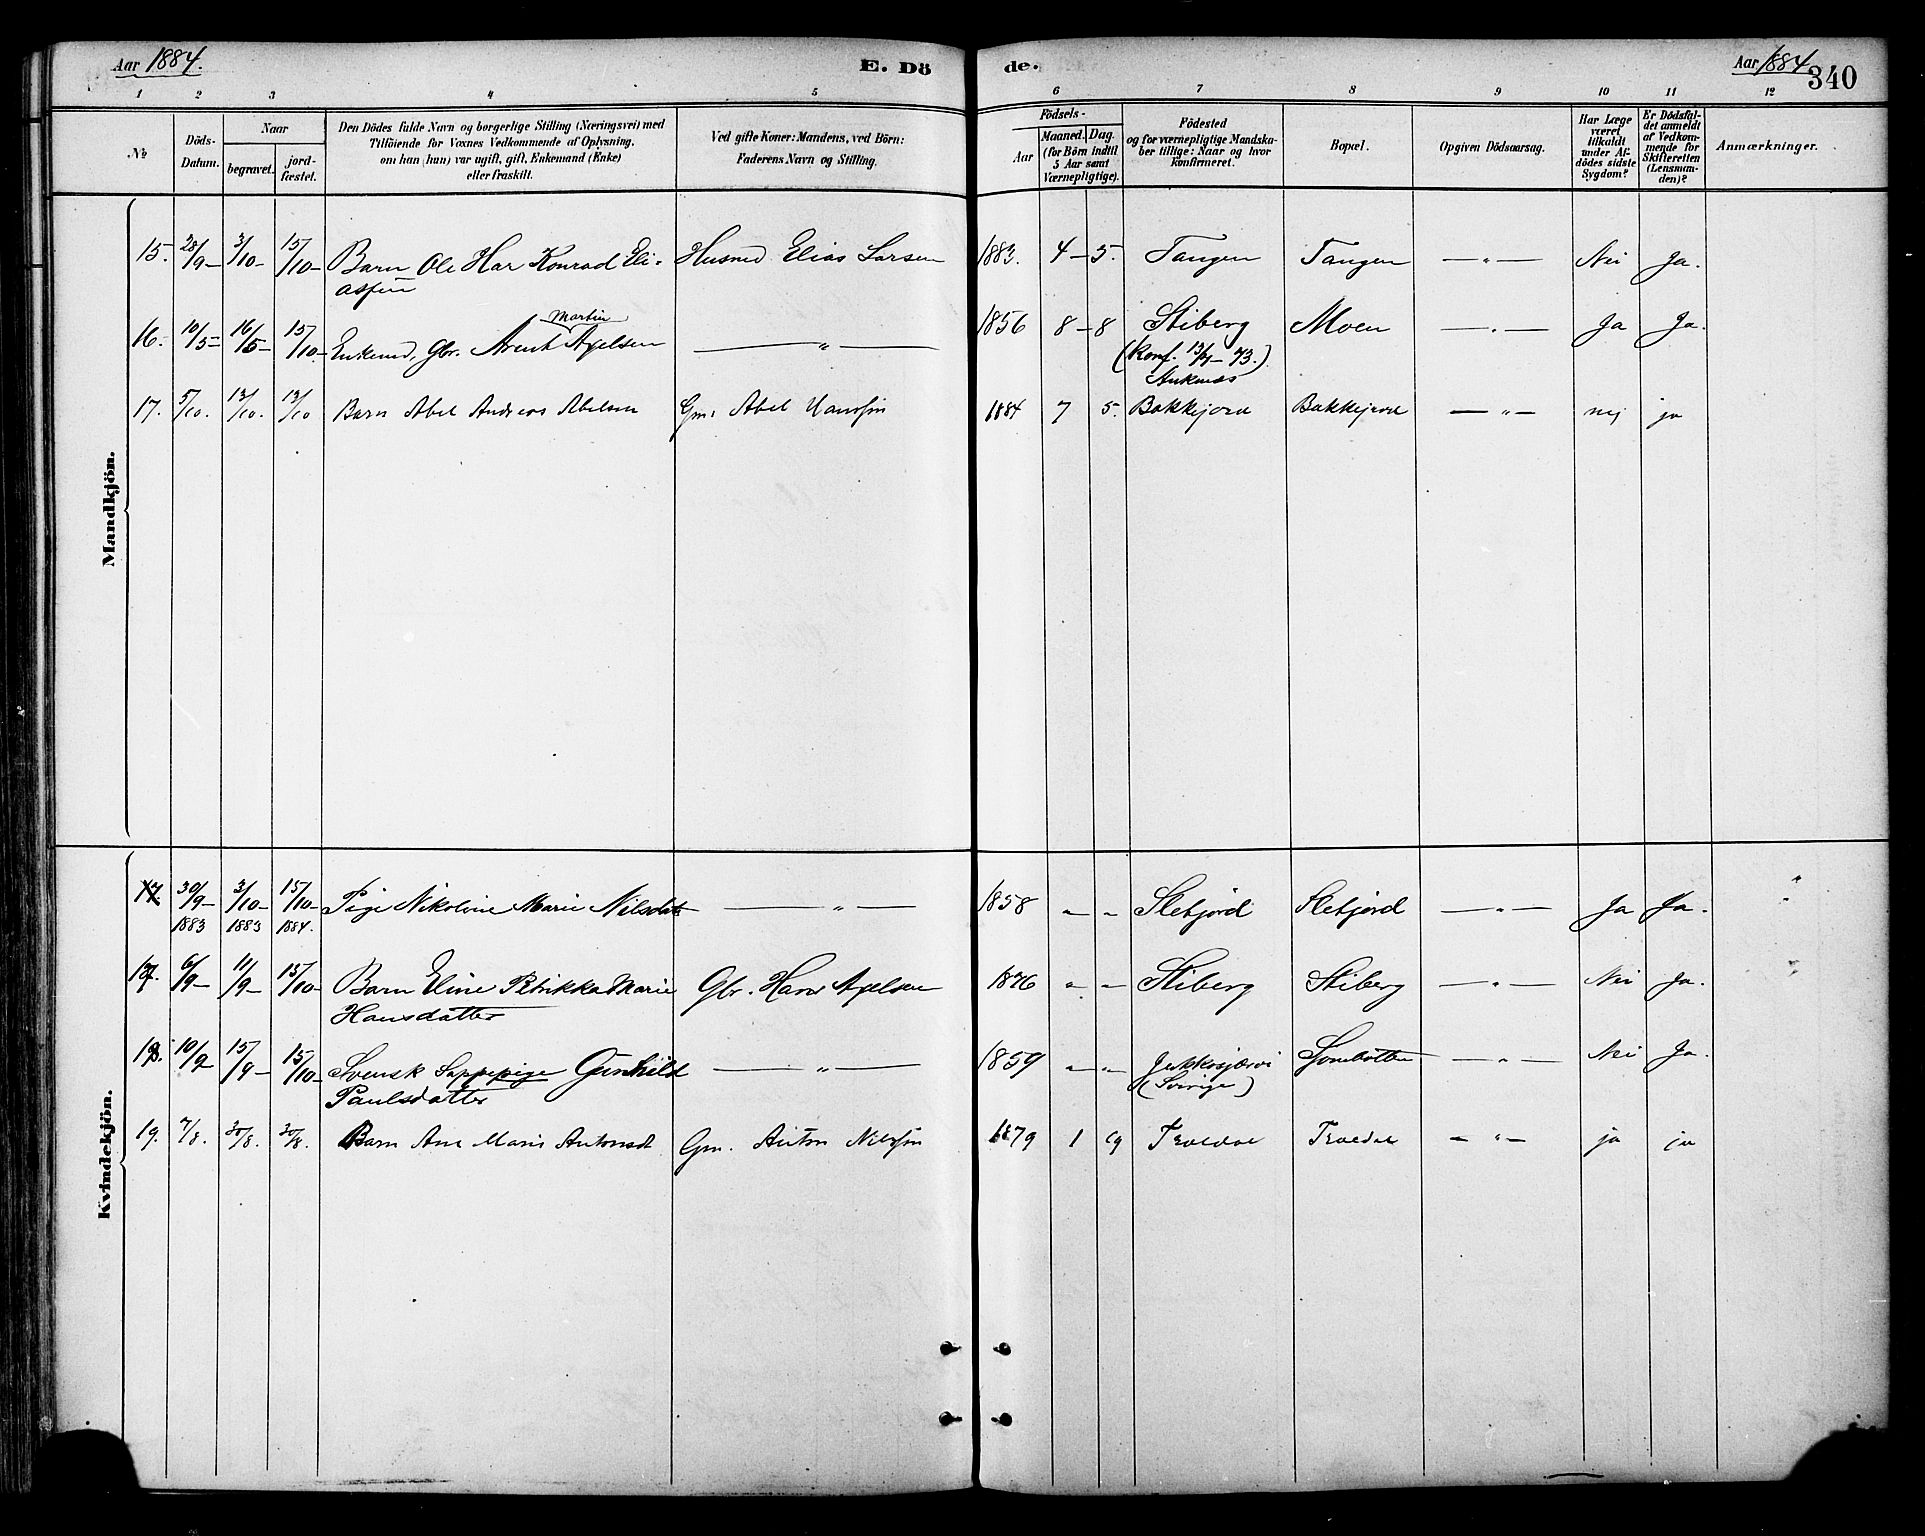 Aar 1884.
E. Dö
de.
Aar 1884
340
1 2 3 4 5 6 7 8 9 10 11 12
No
Döds-
Datum.
Naar
begravet.
jord-
fæstet.
Den Dödes fulde Navn og borgerlige Stilling (Næringsvei) med
Tilföiende for Voxnes Vedkommende af Oplysning,
om han (hun) var ugift, gift, Enkemand (Enke)
eller fraskilt.
Ved gifte Koner: Mandens, ved Börn:
Faderens Navn og Stilling.
Födsels-
Aar
Maaned. Dag.
(for Börn indtil
5 Aar samt
Værnepligtige).
Födested
og for værnepligtige Mandska-
ber tillige: Naar og hvor
konfirmeret.
Bopæl.
Opgiven Dödsaarsag.
Har Læge
været
tilkaldt
under Af-
dödes sidste
Sygdom?
Er Dödsfal-
det anmeldt
af Vedkom-
mende for
Skifteretten
(Lensman-
den)?
Anmærkninger.
Mandkjön.
15. 28/9- 3/10- 15/10- Barn Ole Har Konrad Eli- Husmd Elias Larsen 1883. 4-5. Tangen Tangen -"- Nei Ja.
assen
Martin
16. 10/5- 16/5- 15/10- Enkemd, Gbr. Arent Axelsen -"- 1856 8-8 Stiberg Moen -"- Ja Ja.
(Konf. 13/7-73.)
Ankenes
17. 5/10. 12/10. 12/10 Barn Abel Andreas Abelsen Gm: Abel Hanssøn 1884 7 5. Bakkejord Bakkejord -"- nej ja
Kvindekjön.
17. 30/9- 3/10- 15/10- Pige Nikoline Marie Nilsdatr -"- 1858 " " Sletjord Sletjord -"- Ja Ja.
1883 1883 1884.
17. 6/9- 11/9- 15/10- Barn Eline Petrikka Marie Gbr. Hans Axelsen 1876 " " Stiberg Stiberg -"- Nei Ja.
Hansdatter
18. 10/9 15/9- 15/10- Svensk Lappepige Gunhild -"- 1859 " " Jukkasjærvi Sombotten -"- Nei Ja.
Paulsdatter (Sverige)
19. 7/8. 30/8. 30/8. Barn Ane Maria Antonsdt Gm. Anton Nilssøn 1879 1 19 Troldal Troldal -"- ja ja